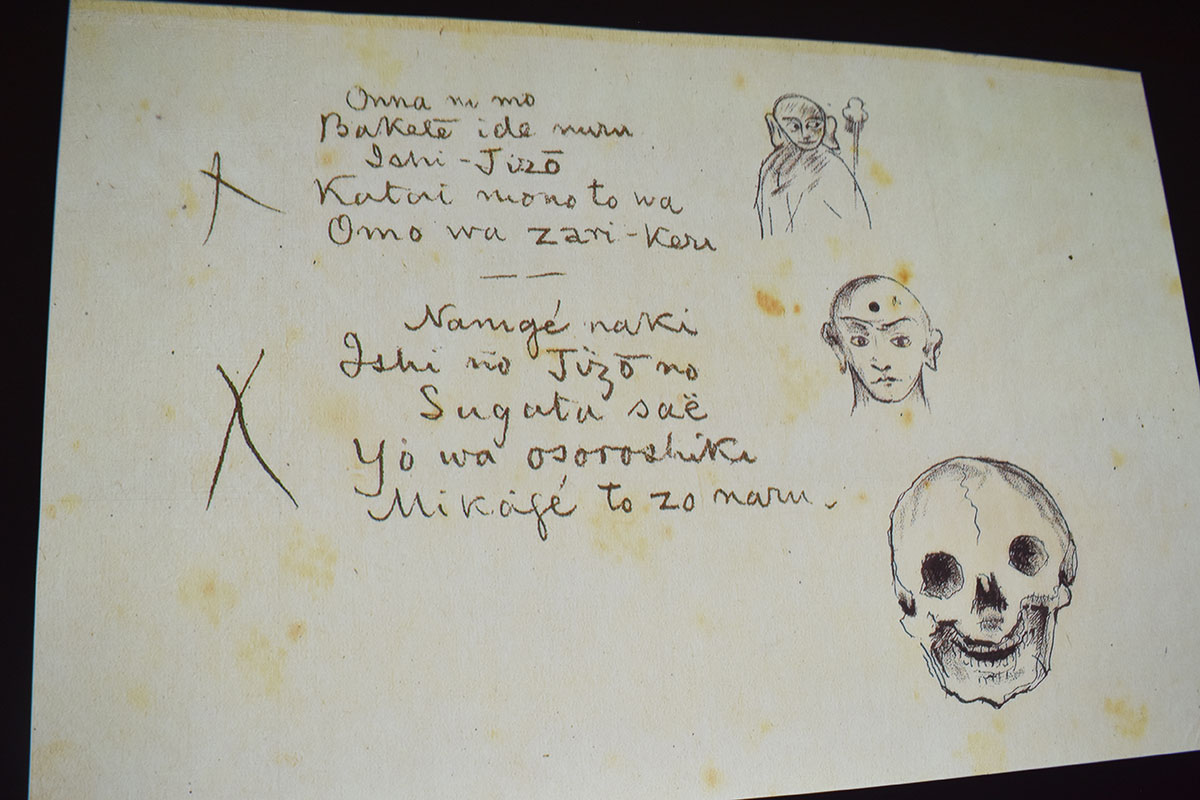 Onna ni mo
Baketé ide nuru
Ishi-Jizō
Katai mono to wa
Omo wa zari-keru
Nanigé naki
Ishi no Jizō no
Sugata saë
Yo wa osoroshiki
Mikagé to zo naru.